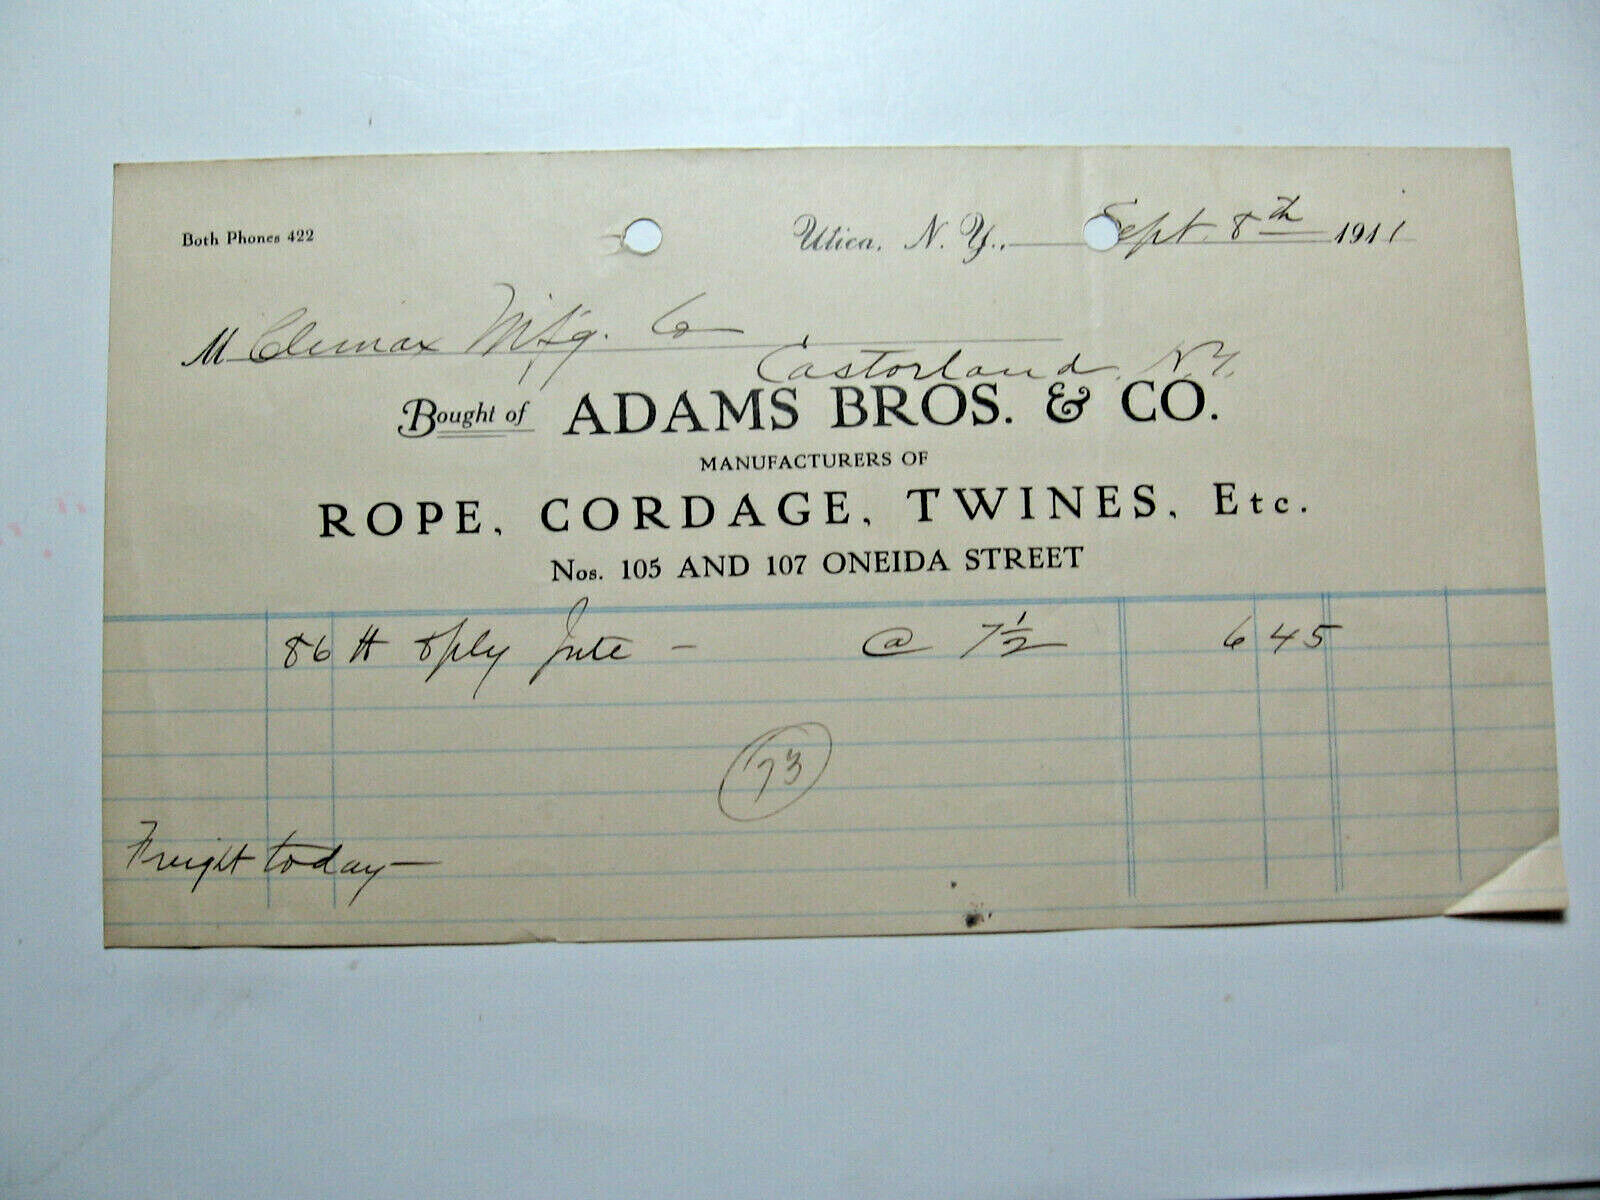 Both Phones 422
Utica, N. Y., Sept. 8th 1911
M Climax Mfg. Co
Castorland, N.Y.
Bought of ADAMS BROS. & CO.
MANUFACTURERS OF
ROPE, CORDAGE, TWINES, Etc.
Nos. 105 AND 107 ONEIDA STREET
86 # 8ply Jute - @ 7 1/2 6 45
73
Freight today -